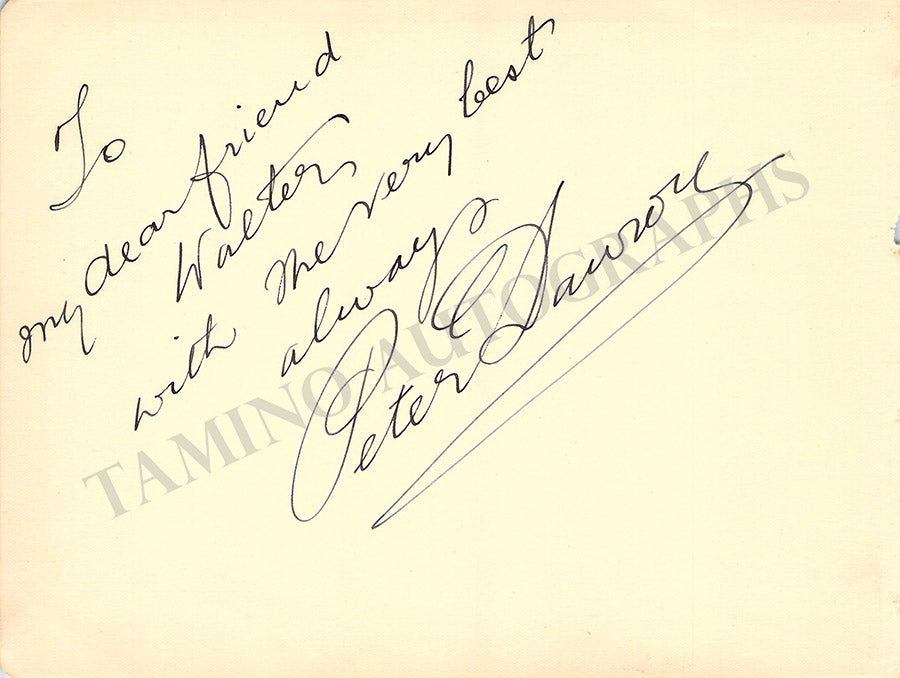 To
my dear friend
Walter,
with the very best
always
Peter Dawson
TAMINO AUTOGRAPHS